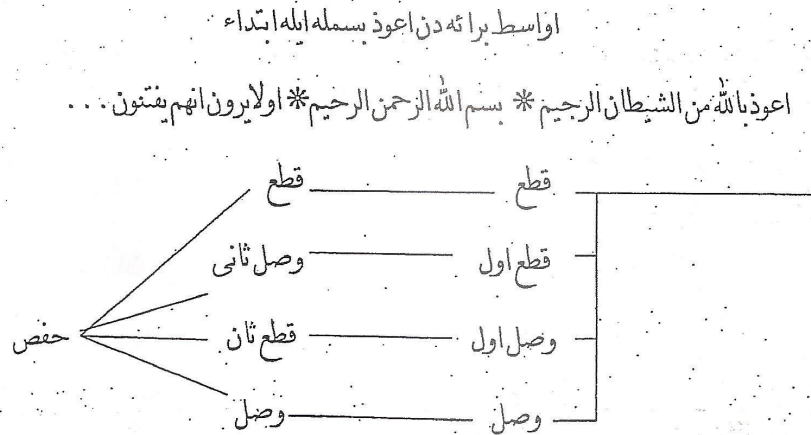 اواسط برائه دن اعوذ بسمله ایله ابتداء
اعوذ بالله من الشیطان الرجیم * بسم الله الرحمن الرحیم * اولایرون انهم یفتنون . . .
قطع قطع
قطع اول وصل ثانی
وصل اول قطع ثان
حفص
وصل وصل